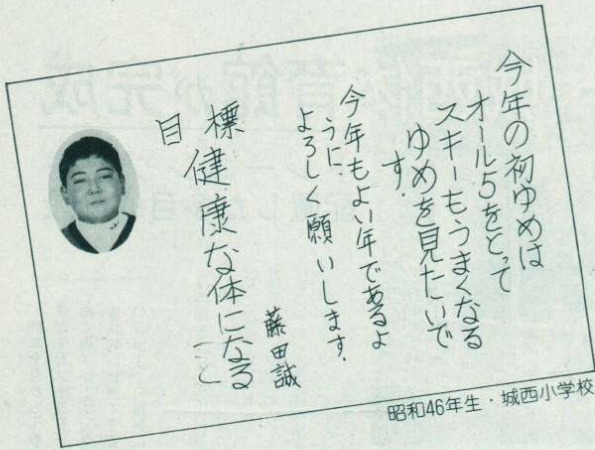 今年の初ゆめは
オール5をとって
スキーもうまくなる
ゆめを見たいで
す.
今年もよい年であるよ
うに.
よろしく願いします.
藤田誠
目
標健康な体になる
こと
昭和46年生・城西小学校